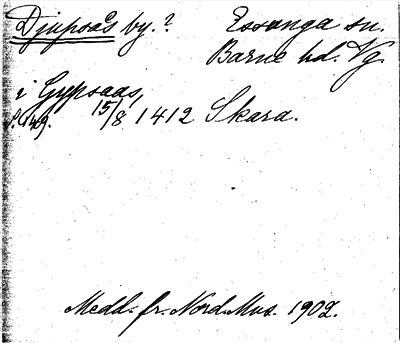 Djupsås by.? Essunga sn.
Barne hd. Vg.
i Gypsaas,
s. 149. 15/8 1412 Skara.
Medd. fr. Nord. Mus. 1902.